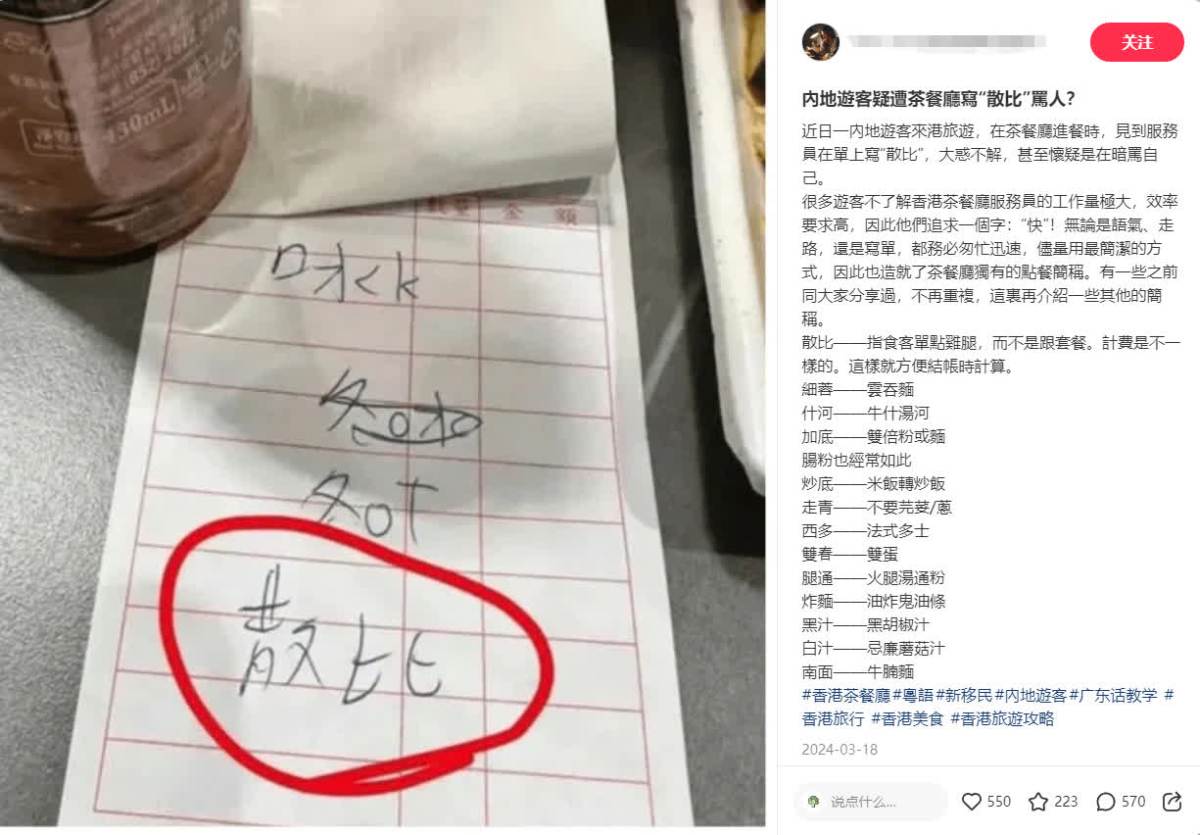 30mL
金 額
散比
关注
內地遊客疑遭茶餐廳寫“散比”罵人?
近日一內地遊客來港旅遊，在茶餐廳進餐時，見到服務
員在單上寫“散比”，大惑不解，甚至懷疑是在暗罵自
己。
很多遊客不了解香港茶餐廳服務員的工作量極大，效率
要求高，因此他們追求一個字：“快”！無論是語氣、走
路，還是寫單，都務必匆忙迅速，儘量用最簡潔的方
式，因此也造就了茶餐廳獨有的點餐簡稱。有一些之前
同大家分享過，不再重複，這裏再介紹一些其他的簡
稱。
散比——指食客單點雞腿，而不是跟套餐。計費是不一
樣的。這樣就方便結帳時計算。
細蓉——雲吞麵
什河——牛什湯河
加底——雙倍粉或麵
腸粉也經常如此
炒底——米飯轉炒飯
走青——不要芫荽/蔥
西多——法式多士
雙春——雙蛋
腿通——火腿湯通粉
炸麵——油炸鬼油條
黑汁——黑胡椒汁
白汁——忌廉蘑菇汁
南面——牛腩麵
#香港茶餐廳#粵語#新移民#內地遊客#广东话教学 #
香港旅行 #香港美食 #香港旅遊攻略
2024-03-18
说点什么...
550
223
570